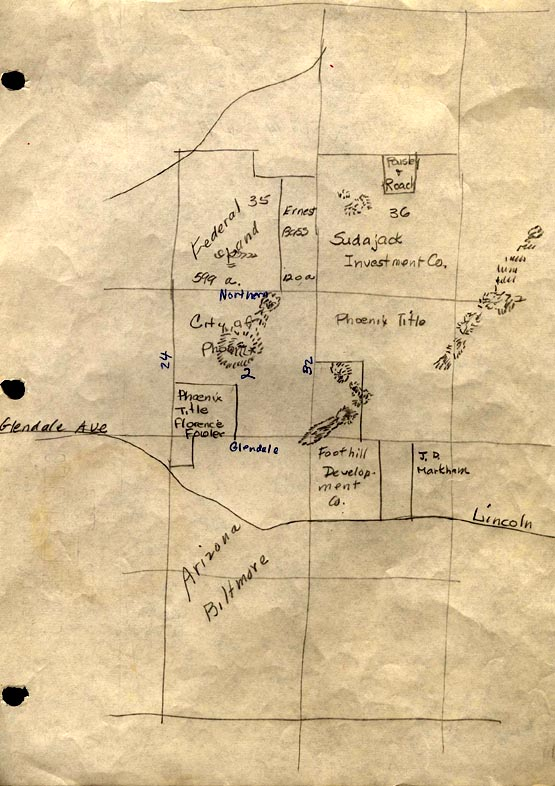 Paisley
+
Road
35
36
Federal
Land
599 a.
Ernest
Bass
120 a
Sudajack
Investment Co.
Northern
City of
Phoenix
2
Phoenix Title
24
32
Phoenix
Title
Florence
Fowler
Glendale Ave
Glendale
Foothill
Develop-
ment
Co.
J.D.
Markham
Lincoln
Arizona
Biltmore